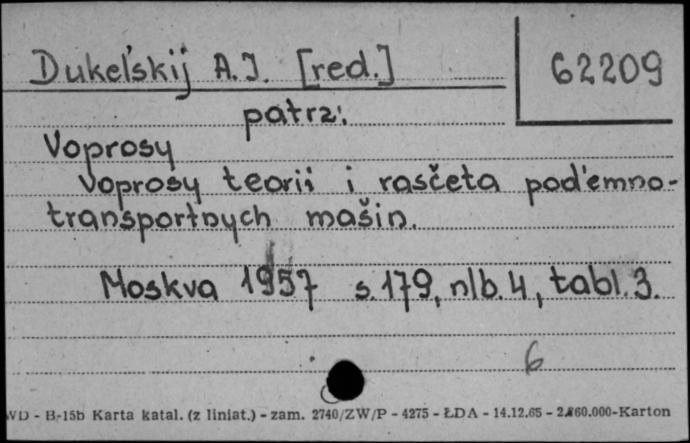 Dukel'skij A.I. [red.] 62209
patrz:
Voprosy
Voprosy teorii i rasčeta pod'emno-
transportnych mašin.
Moskva 1957 s. 179, nlb. 4, tabl. 3.
6
WD - B-15b Karta katal. (z liniat.) - zam. 2740/ZW/P - 4275 - ŁDA - 14.12.65 - 2.860.000-Karton